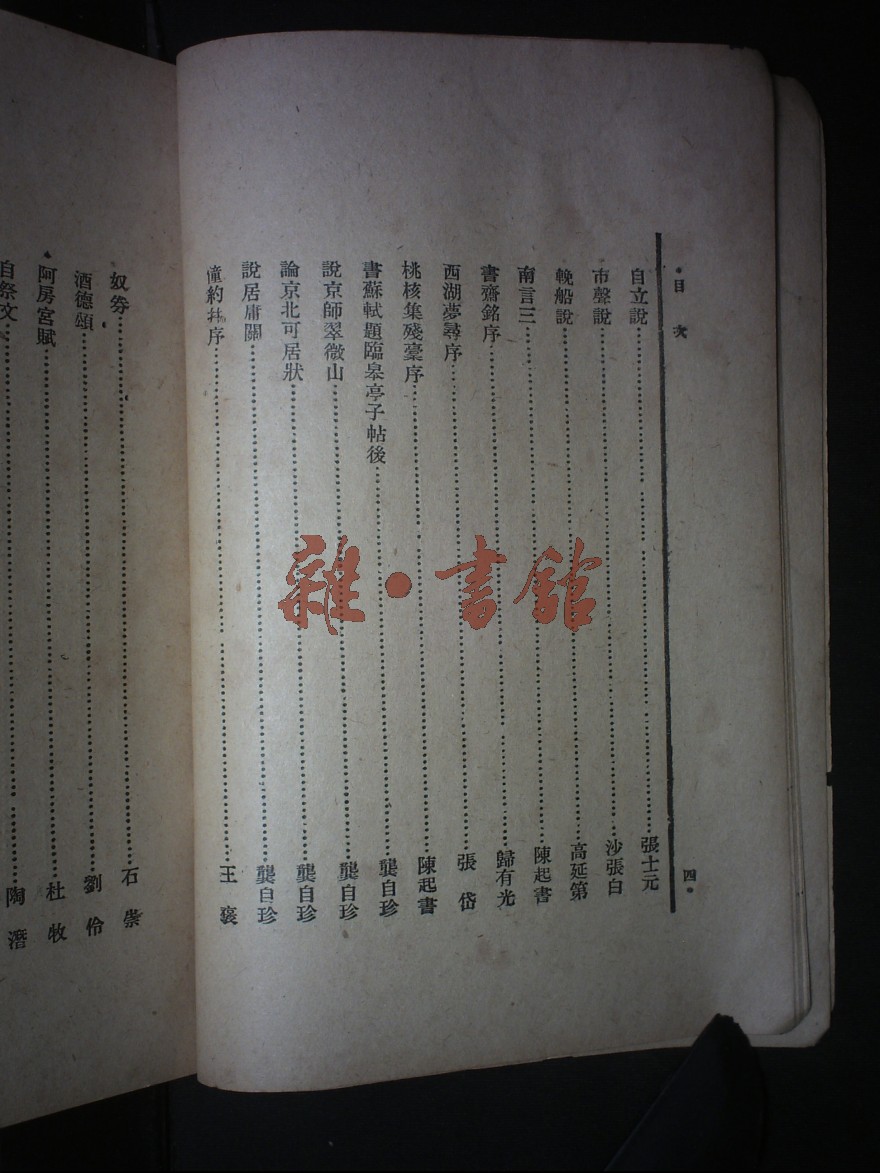 目次 四
自立說 張士元
市聲說 沙張白
輓船說 高延第
南言三 陳起書
書齋銘序 歸有光
西湖夢尋序 張岱
桃核集殘稾序 陳起書
書蘇軾題臨皋亭子帖後 龔自珍
說京師翠微山 龔自珍
論京北可居狀 龔自珍
說居庸關 龔自珍
僮約幷序 王襃
奴券 石崇
酒德頌 劉伶
阿房宮賦 杜牧
自祭文 陶潛
雜·書館